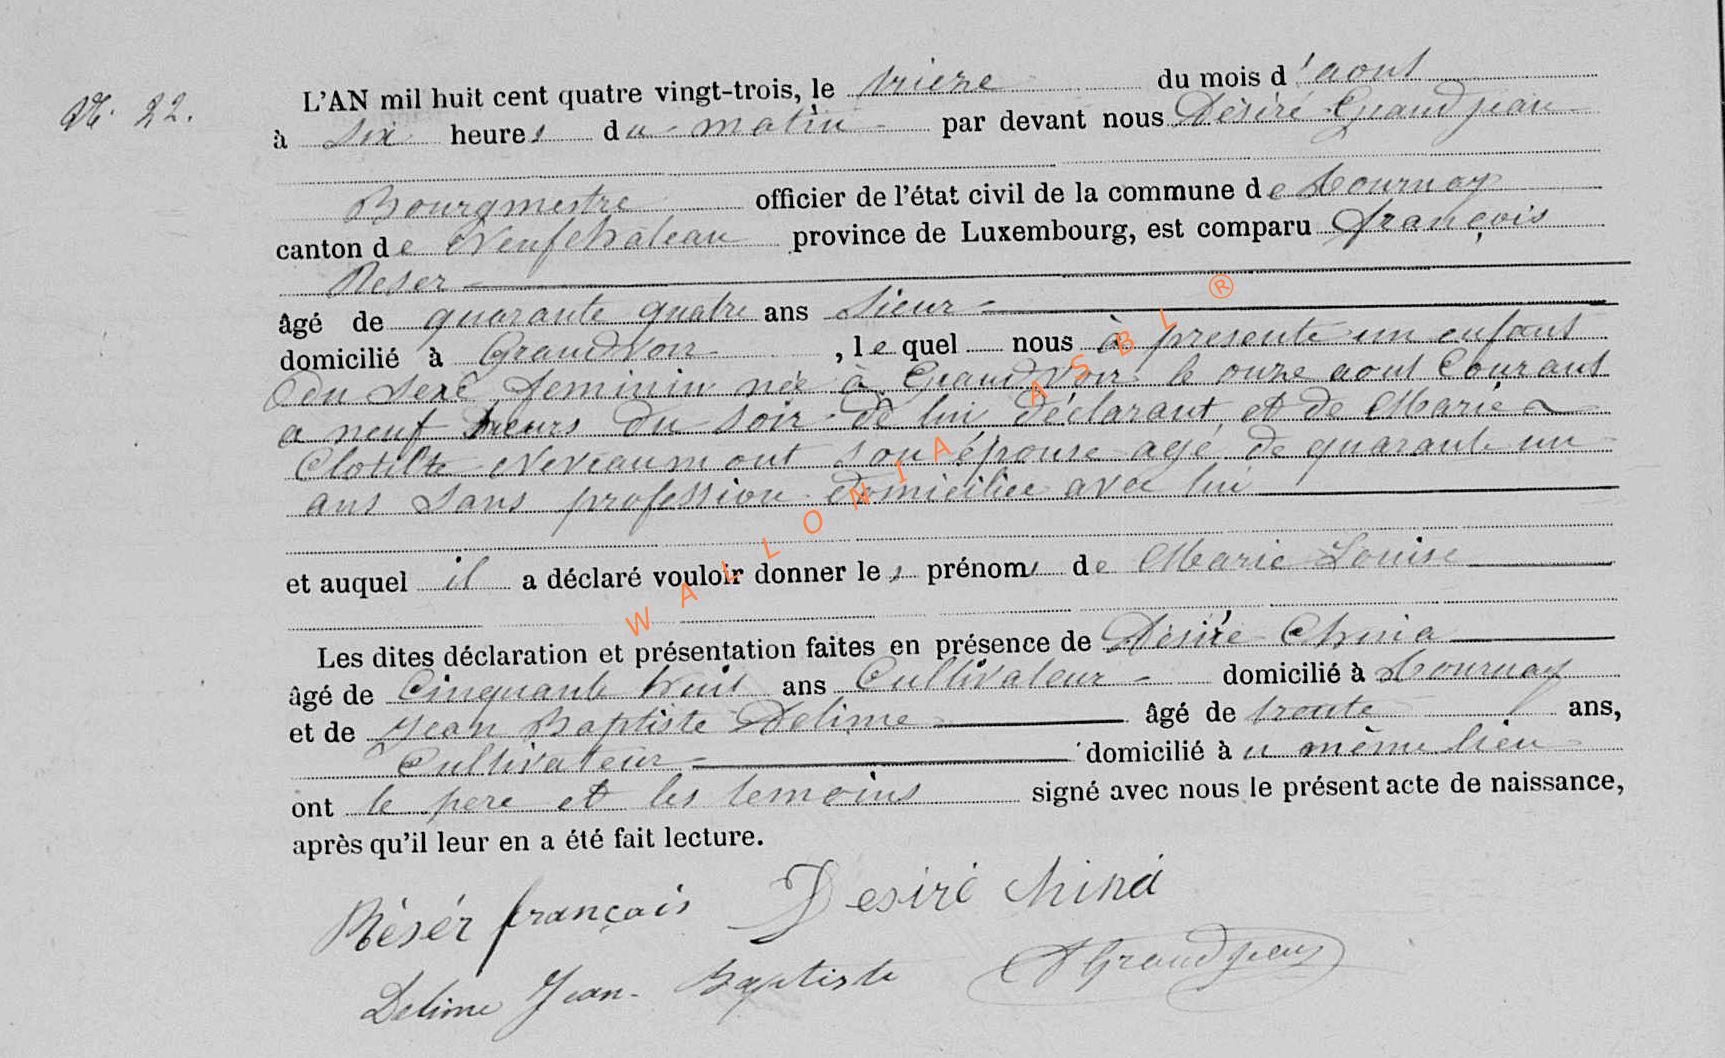 N. 22.
L'AN mil huit cent quatre vingt-trois, le treize du mois d'aout
à six heures du matin par devant nous Désiré Grandjean
Bourgmestre officier de l'état civil de la commune de Tournay
canton de Neufchateau province de Luxembourg, est comparu françois
Reser
âgé de quarante quatre ans Sieur
domicilié à Grandvoir, lequel nous à presente un enfant
du sexe feminin née à Grandvoir le onze aout Courant
a neuf heurs du soir de lui déclarant et de Marie
Clotilte Neveaumont son épouse agé de quarante un
ans sans profession domiciliee avec lui
et auquel il a déclaré vouloir donner les prénoms de Marie Louise
Les dites déclaration et présentation faites en présence de Désiré China
âgé de Cinquante huit ans Cultivateur domicilié à Tournay
et de Jean Baptiste Delime âgé de trente ans,
Cultivateur domicilié à u même lieu
ont le pere et les temoins signé avec nous le présent acte de naissance,
après qu'il leur en a été fait lecture.
Résér françois Desiré china
Delime Jean-Baptiste DGrandjean
WALLONIA ASBL ®